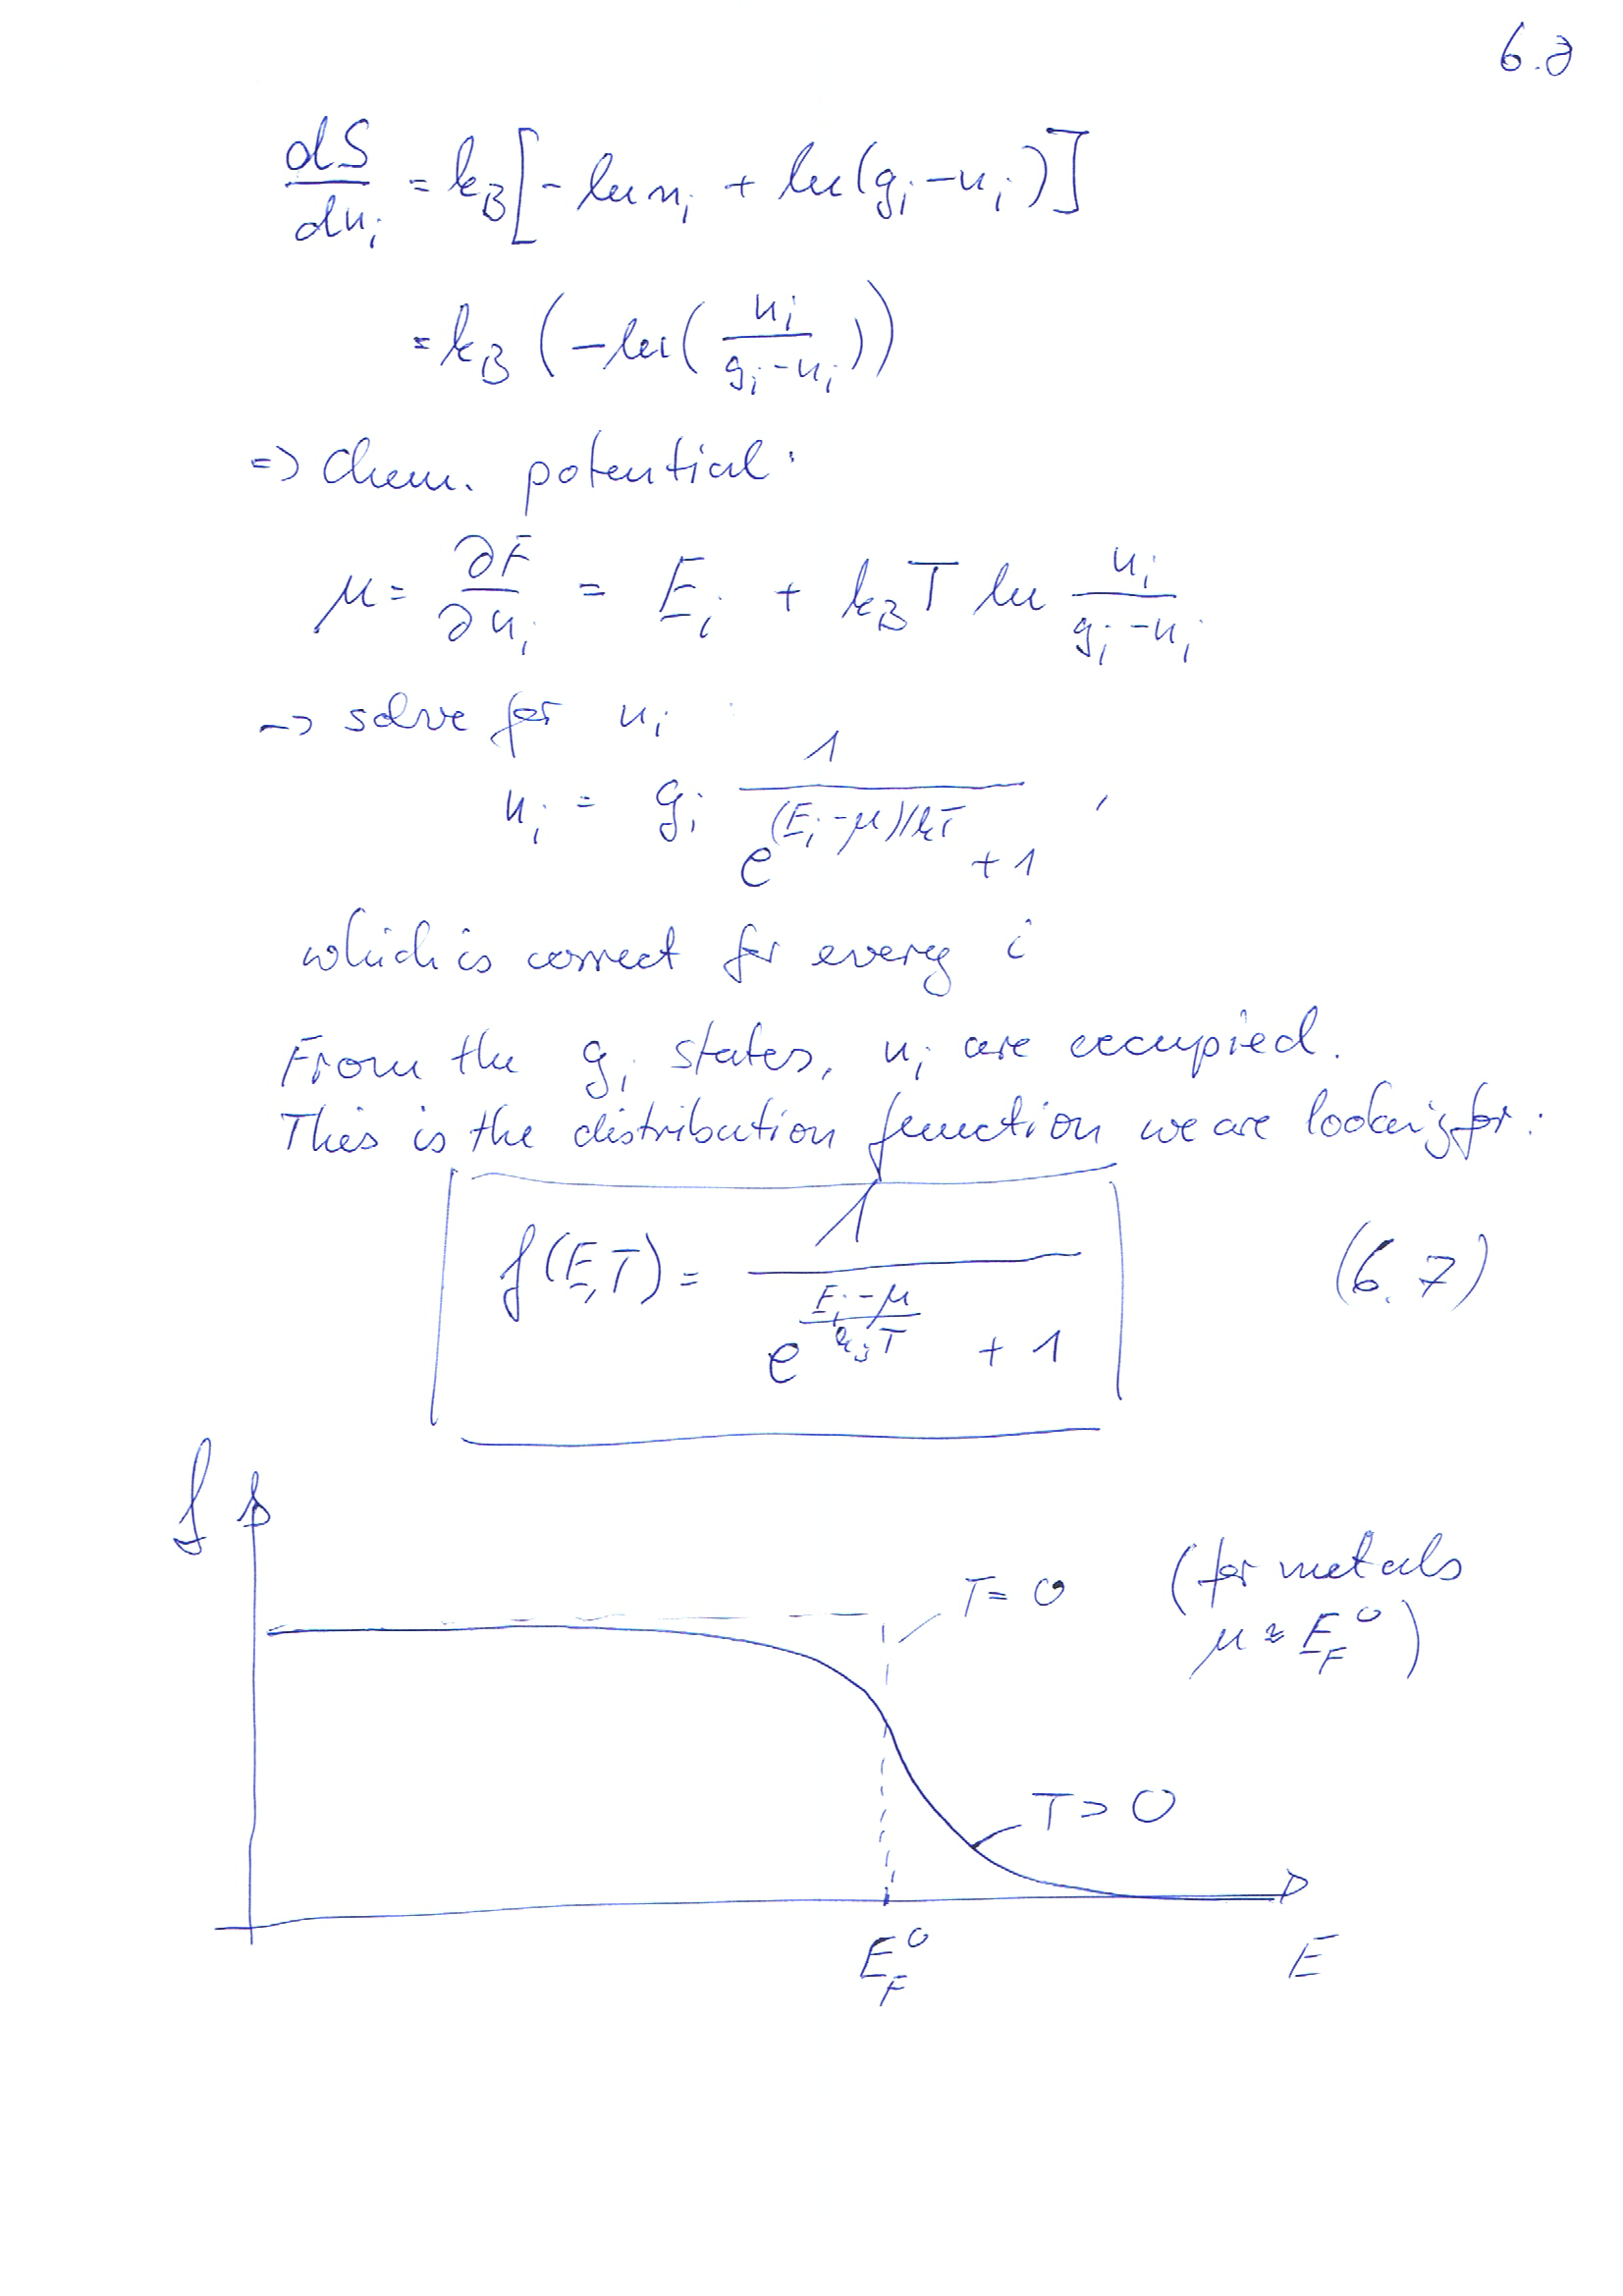 6.8
dS/dn_i = k_B[- ln n_i + ln(g_i - n_i)]
= k_B (- ln( n_i / (g_i - n_i) ))
=> Chem. potential:
μ = ∂F/∂n_i = E_i + k_B T ln n_i / (g_i - n_i)
-> solve for n_i
n_i = g_i 1 / (e^((E_i - μ)/kT) + 1) ,
which is correct for every i
From the g_i states, n_i are occupied.
This is the distribution function we are looking for:
f(E,T) = 1 / (e^((E_i - μ)/(k_B T)) + 1) (6.7)
f
T = 0 (for metals
μ ≈ E_F^0)
T > 0
E_F^0 E